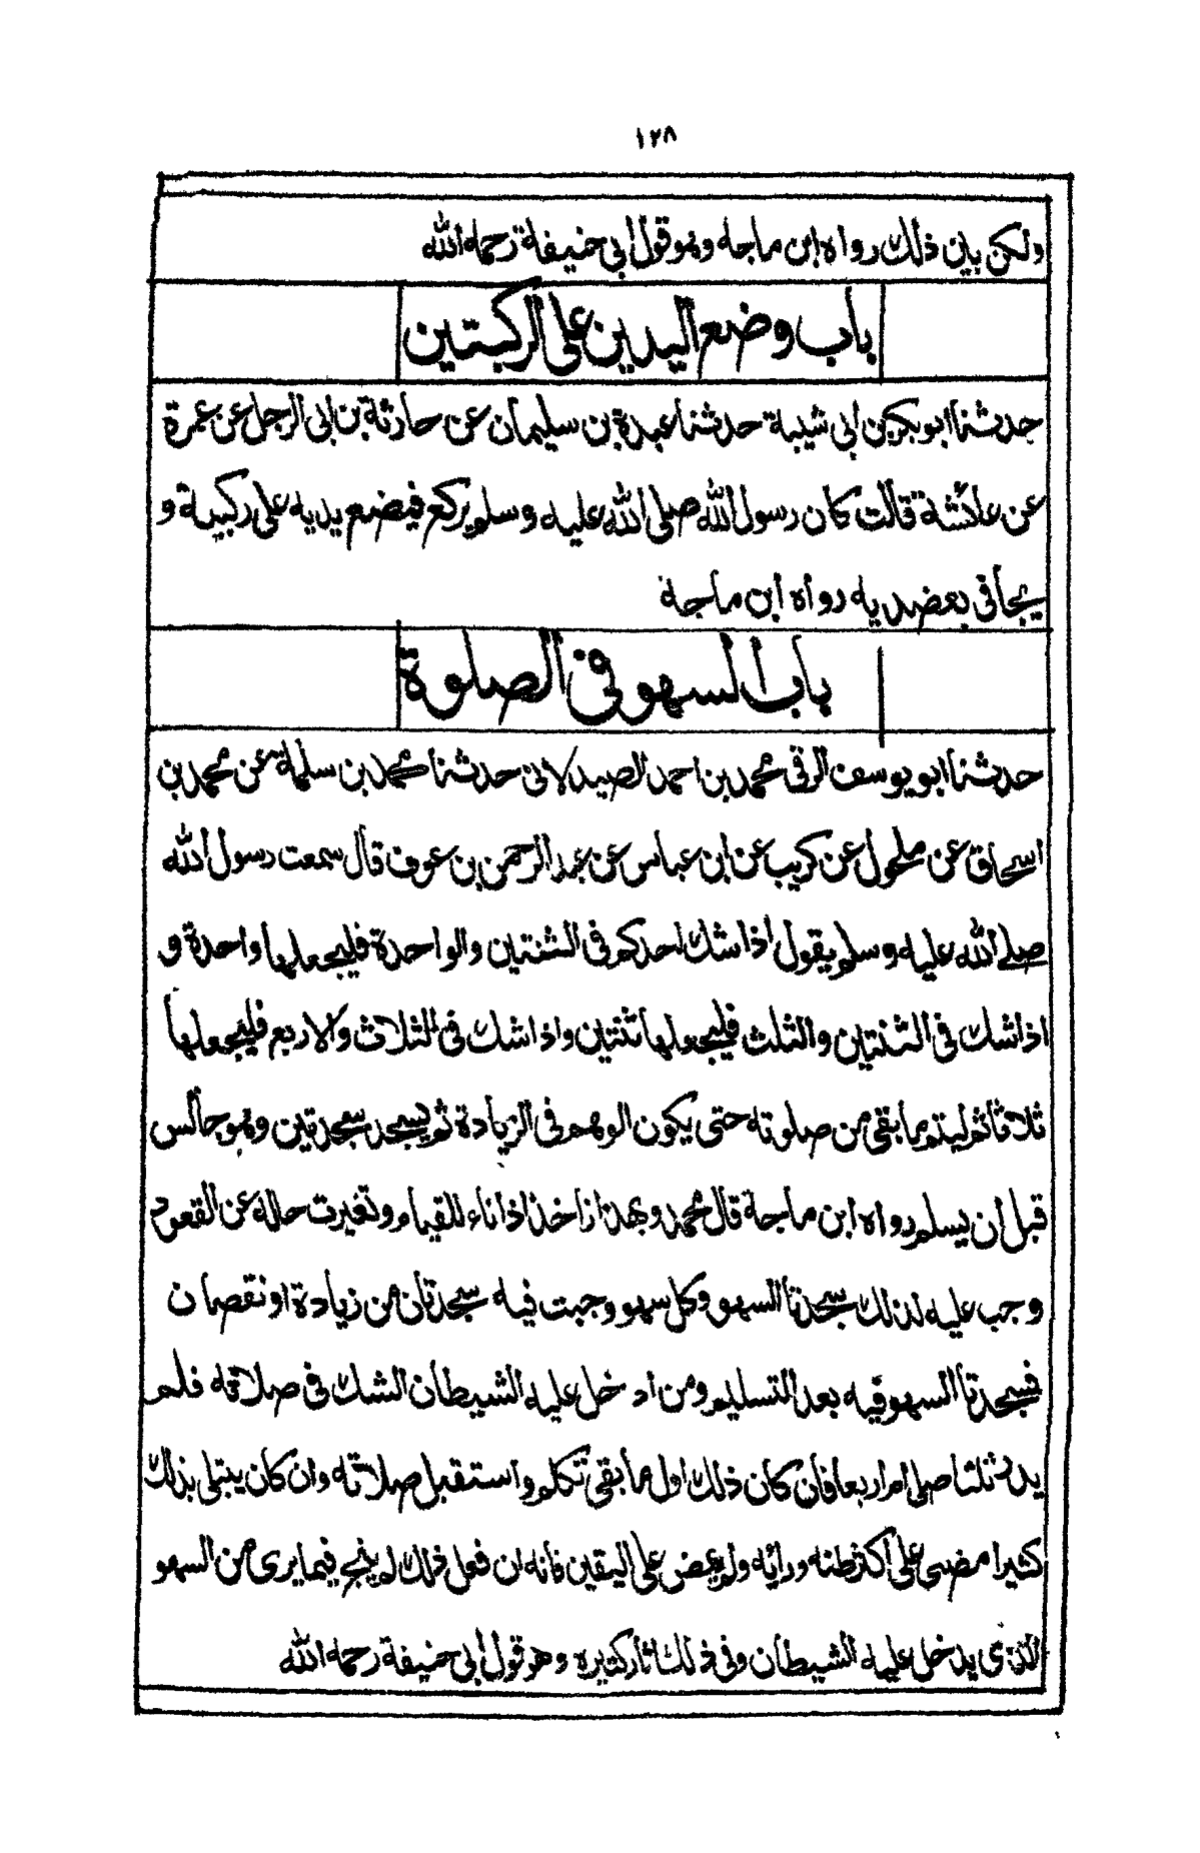 ١٢٨
ولكن بين ذلك رواه ابن ماجه وهو قول ابي حنيفة رحمه الله
باب وضع اليدين على الركبتين
حدثنا ابو بكر بن ابي شيبة حدثنا عبدة بن سليمان عن حارثة بن ابى الرجل عن عمرة
عن عائشة قالت كان رسول الله صلى الله عليه وسلم يركع فيضع يديه على ركبيه و
يجافى بعضديه رواه ابن ماجة
باب السهو فى الصلوة
حدثنا ابو يوسف الرقى محمد بن احمد الصيدلانى حدثنا محمد بن سلمة عن محمد بن
اسحاق عن مكحول عن كريب عن ابن عباس عن عبد الرحمن بن عوف قال سمعت رسول الله
صلے الله عليه وسلم يقول اذا شك احدكم فى الثنتين والواحدة فليجعلها واحدة و
اذا شك فى الثنتين والثلث فليجعلها ثنتين واذا شك فى الثلاث والاربع فليجعلها
ثلاثا ثم ليتم ما بقى من صلوته حتى يكون الوهم فى الزيادة ثم يسجد سجدتين وهو جالس
قبل ان يسلم رواه ابن ماجة قال محمد وبهذا ناخذ اذا ناء للقيام وتغيرت حاله عن القعود
وجب عليه لذلك سجدتا السهو وكل سهو وجبت فيه سجدتان من زيادة او نقصان
فسجدتا السهو فيه بعد التسليم ومن ادخل عليه الشيطان الشك فى صلاته فلم
يدر ثلثا صلى ام اربعا فان كان ذلك اول ما بقى تكلم واستقبل صلاته وان كان يبتلى بذلك
كثيرا مضى على اكثر ظنه ورائه ولم يمض على اليقين فانه ان فعل ذلك لم ينج فيما يرى من السهو
الذى يدخل عليه الشيطان وفى ذلك اثار كثيره وهو قول ابى حنيفة رحمه الله